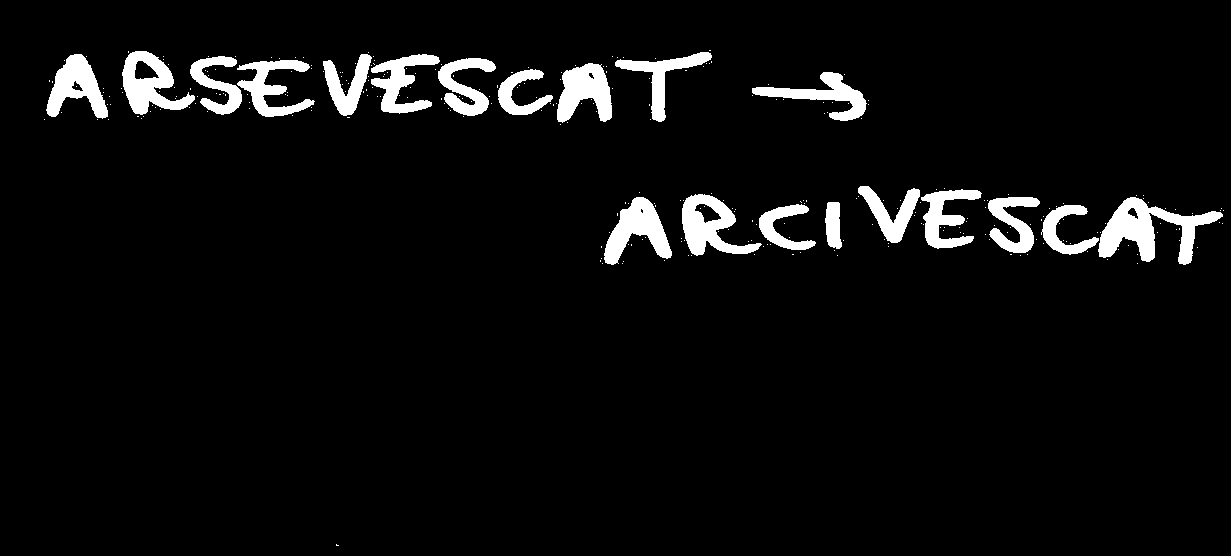 ARSEVESCAT →
ARCIVESCAT